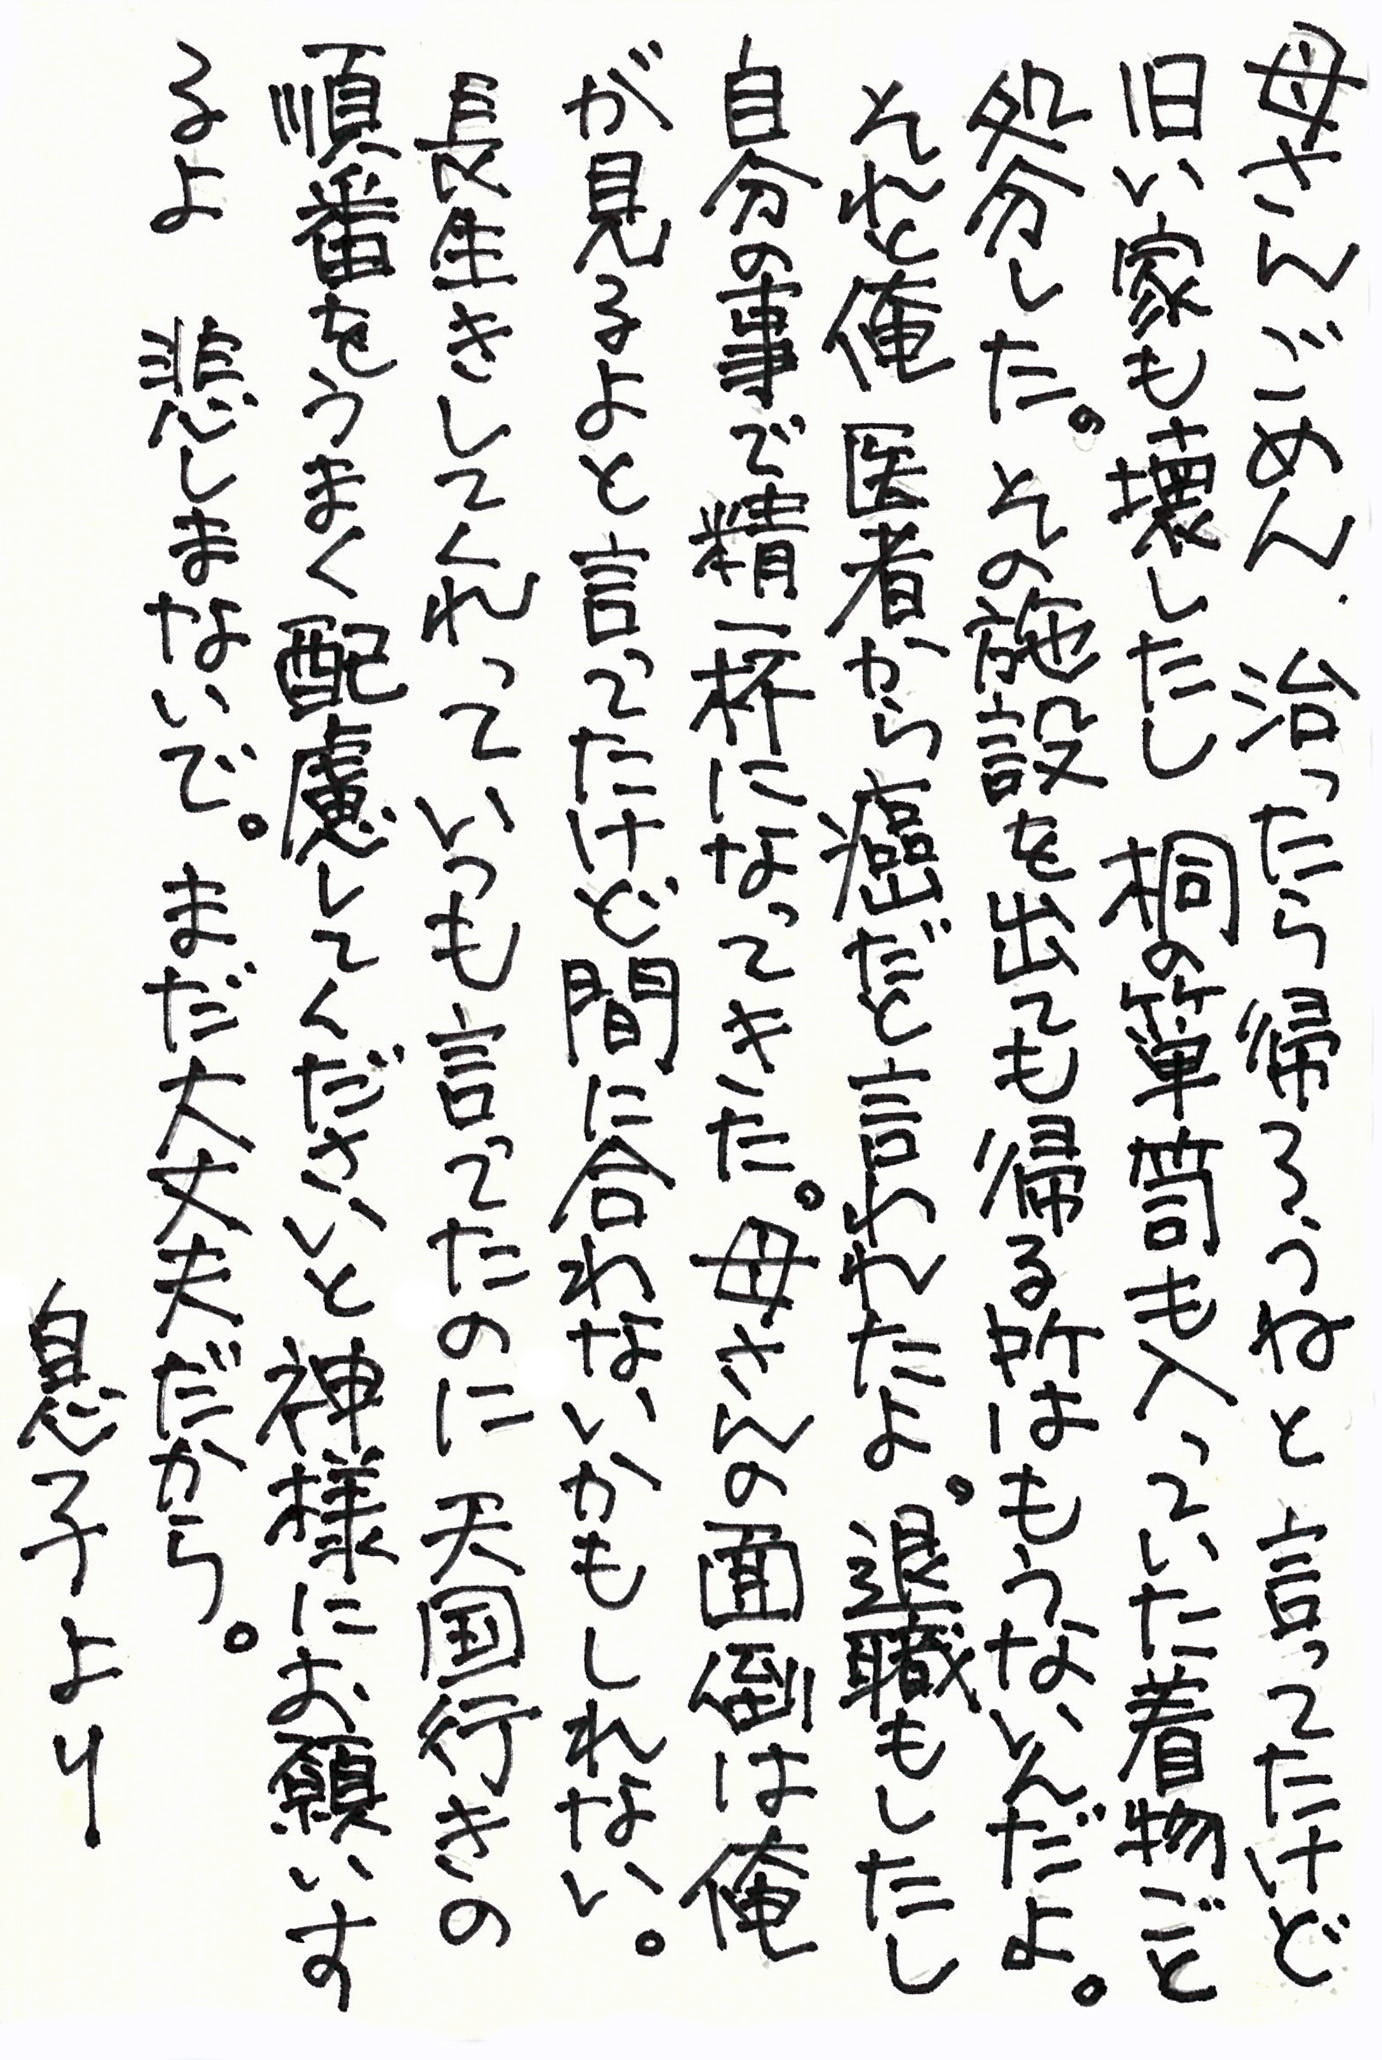 母さんごめん、治ったら帰ろうねと言ってたけど
旧い家も壊したし　桐の箪笥も入っていた着物ごと
処分した。その施設を出ても帰る所はもうないんだよ。
それと俺 医者から癌だと言われたよ。退職もしたし
自分の事で精一杯になってきた。母さんの面倒は俺
が見るよと言ってたけど間に合わないかもしれない。
長生きしてくれっていつも言ってたのに 天国行きの
順番をうまく配慮してくださいと神様にお願いす
るよ　悲しまないで。まだ大丈夫だから。
息子より